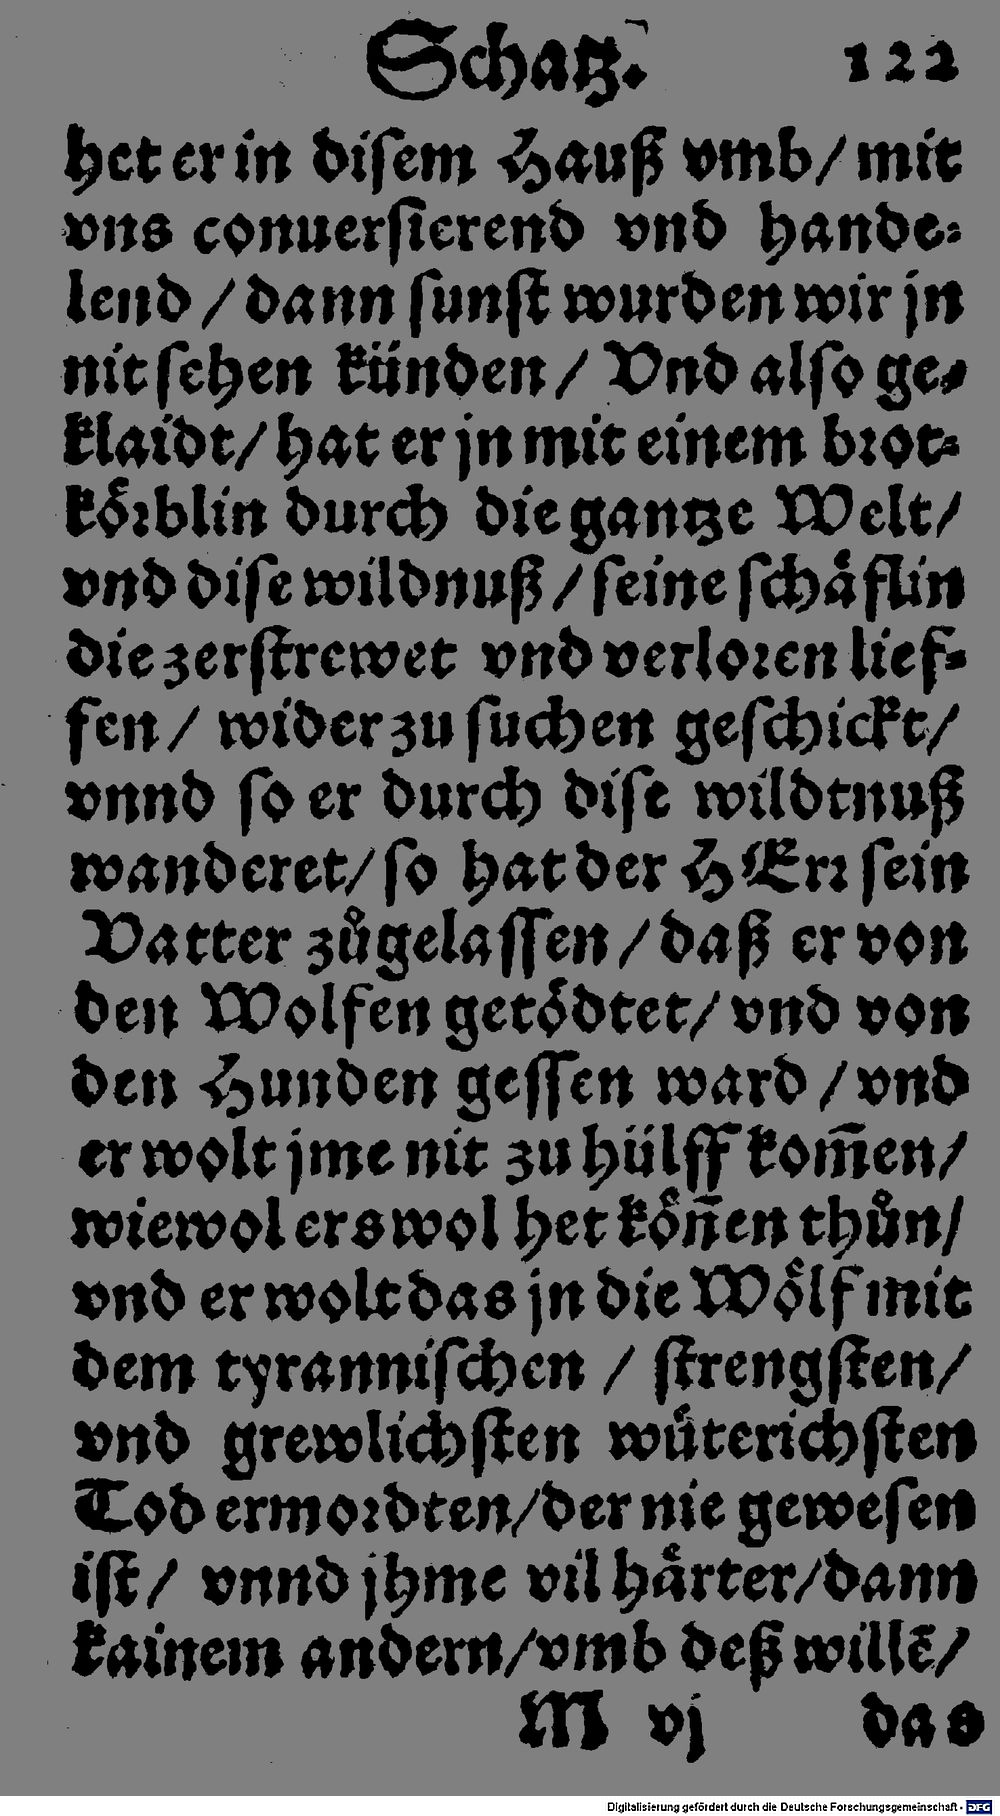 Schatz. 122
het er in disem Hauß vmb/ mit
vns conuersierend vnd hande-
lend / dann sunst wurden wir jn
nit sehen künden / Vnd also ge-
klaidt/ hat er jn mit einem brot-
koͤrblin durch die gantze Welt/
vnd dise wildnuß / seine schaͤflin
die zerstrewet vnd verloren lief-
fen / wider zu suchen geschickt/
vnnd so er durch dise wildtnuß
wanderet/ so hat der HErr sein
Vatter zůgelassen / daß er von
den Wolfen getoͤdtet/ vnd von
den Hunden gessen ward / vnd
er wolt jme nit zu hülff kom̄en/
wiewol ers wol het koͤn̄en thůn/
vnd er wolt das jn die Woͤlf mit
dem tyrannischen / strengsten/
vnd grewlichsten wuͤterichsten
Tod ermordten/ der nie gewesen
ist/ vnnd jhme vil haͤrter/ dann
kainem andern/ vmb deß willē/
M vj das
Digitalisierung gefördert durch die Deutsche Forschungsgemeinschaft - DFG